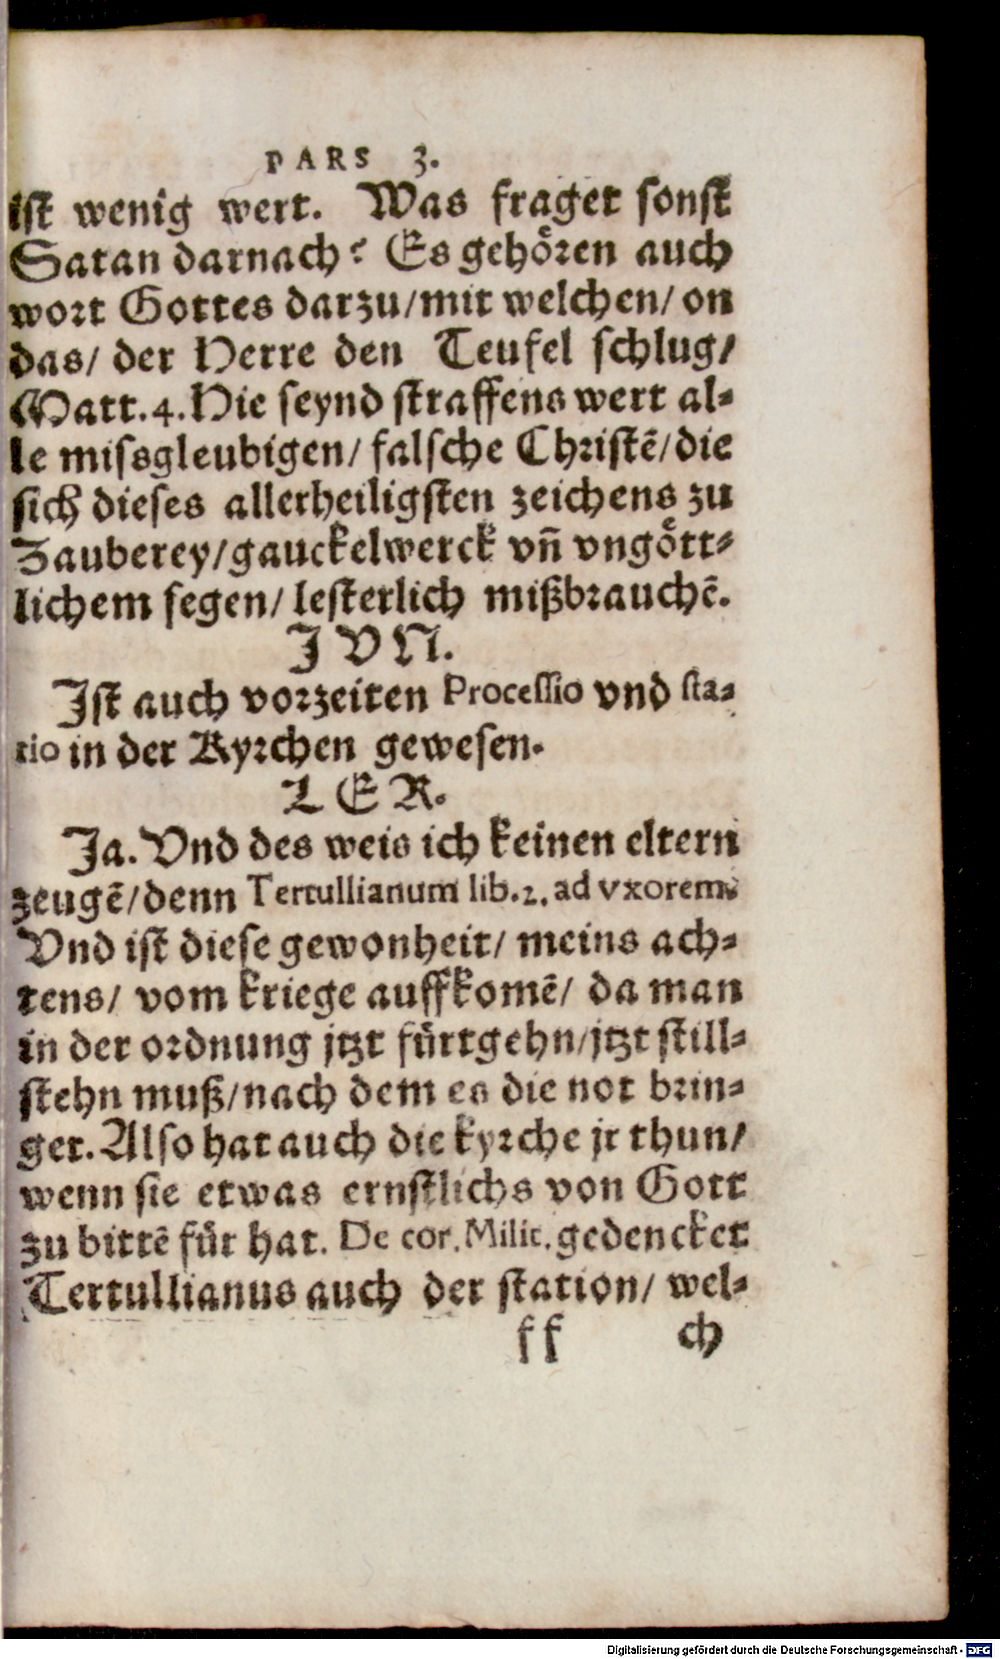 PARS 3.
ist wenig wert. Was fraget sonst
Satan darnach? Es gehören auch
wort Gottes darzu/mit welchen/ on
das/ der Herre den Teufel schlug/
Matt.4. Hie seynd straffens wert al-
le missgleubigen/ falsche Christē/die
sich dieses allerheiligsten zeichens zu
Zauberey/gauckelwerck vn̄ vngött-
lichem segen/ lesterlich mißbrauchē.
JVN.
Jst auch vorzeiten Processio vnd sta-
tio in der Kyrchen gewesen.
LER.
Ja. Vnd des weis ich keinen eltern
zeugē/denn Tertullianum lib.2. ad vxorem.
Vnd ist diese gewonheit/ meins ach-
tens/ vom kriege auffkomē/ da man
in der ordnung jtzt fürtgehn/jtzt still-
stehn muß/nach dem es die not brin-
get. Also hat auch die kyrche jr thun/
wenn sie etwas ernstlichs von Gott
zu bittē für hat. De cor. Milit. gedencket
Tertullianus auch der station/ wel-
ff ch
Digitalisierung gefördert durch die Deutsche Forschungsgemeinschaft - DFG